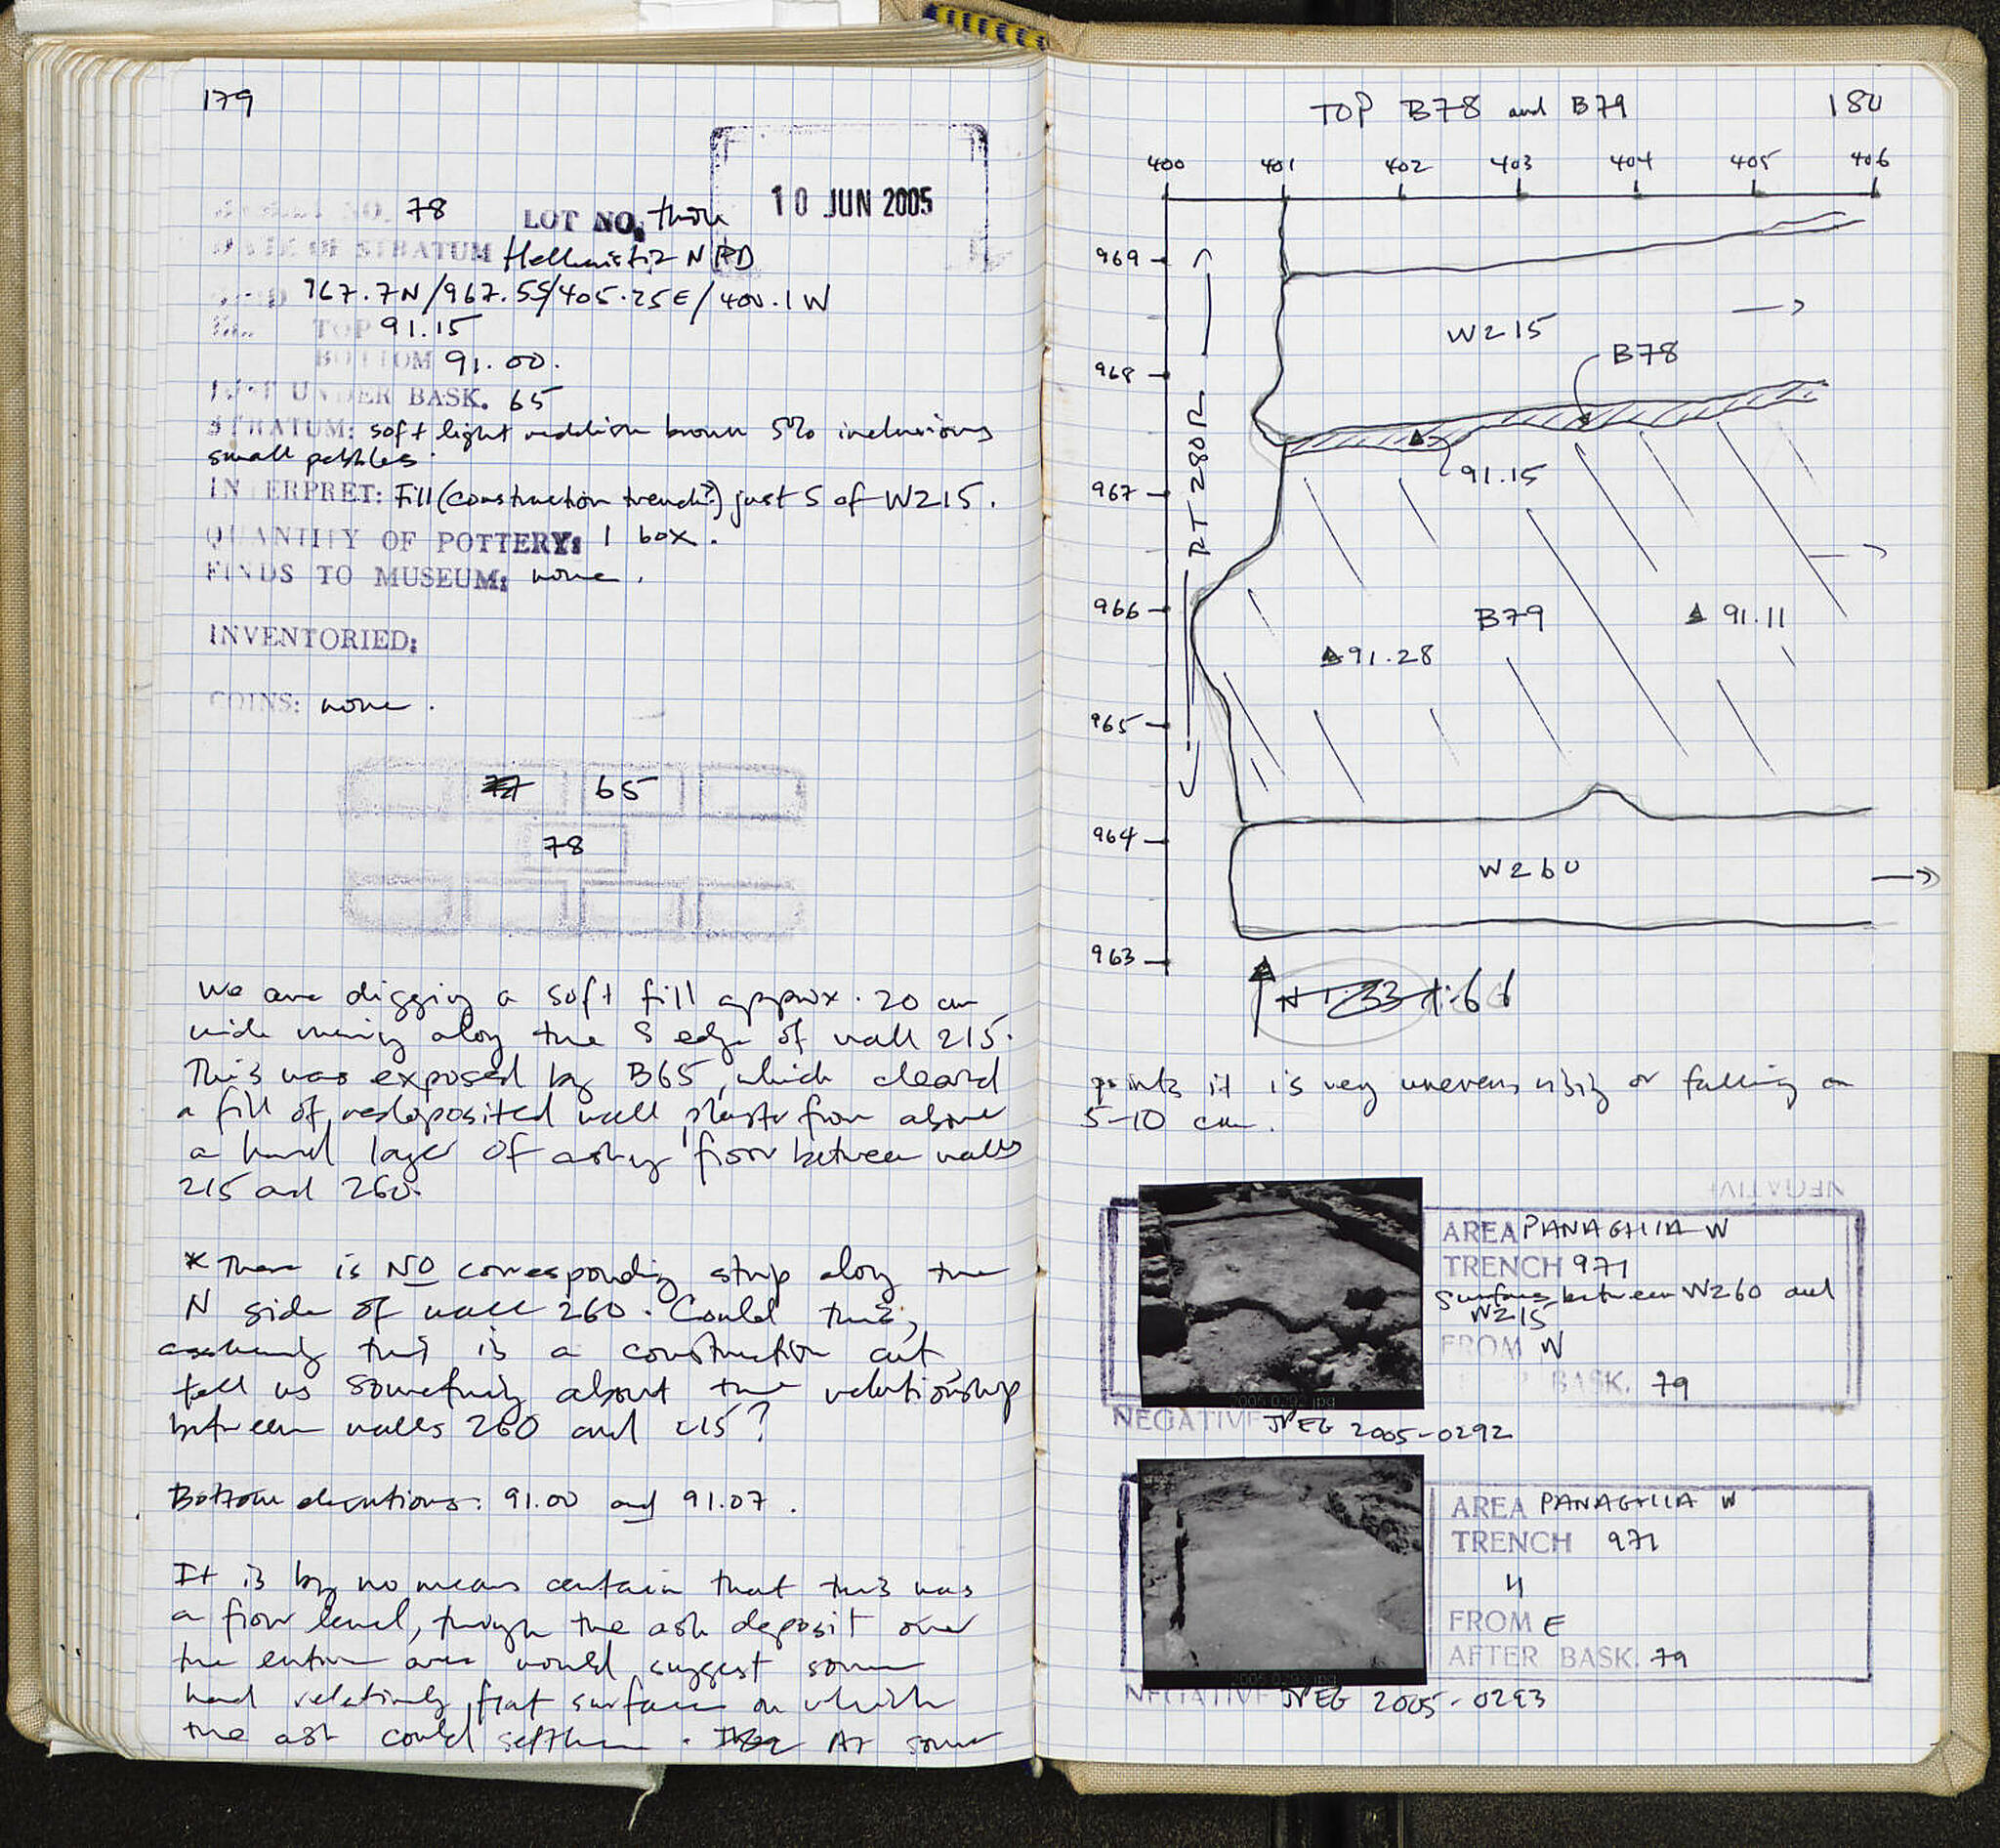 179
10 JUN 2005
BASKET NO. 78 LOT NO. throw
DATE OF STRATUM Hellenistic NPD
GRID 967.7N/967.5S/405.25E/400.1W
TOP 91.15
BOTTOM 91.00.
JUST UNDER BASK. 65
STRATUM: soft light reddish brown 5% inclusions
small pebbles.
INTERPRET: Fill (construction trench?) just S of W215.
QUANTITY OF POTTERY: 1 box.
FINDS TO MUSEUM: none.
INVENTORIED:
COINS: none.
65
78
We are digging a soft fill approx. 20 cm
wide running along the S edge of wall 215.
This was exposed by B65, which cleared
a fill of redeposited wall plaster from above
a hard layer of ashy floor between walls
215 and 260.
* There is NO corresponding strip along the
N side of wall 260. Could this,
assuming this is a construction cut,
tell us something about the relationship
between walls 260 and 215?
Bottom elevations: 91.00 and 91.07.
It is by no means certain that this was
a floor level, though the ash deposit over
the entire area would suggest some
hard relatively flat surface on which
the ash could settle. At some
TOP B78 and B79
180
400 401 402 403 404 405 406
969
W215
B78
968
91.15
967
RT 280R
966
B79
91.11
91.28
965
964
W260
963
N 1:33 1:66
points it is very uneven, rising or falling on
5-10 cm.
NEGATIVE
AREA PANAGHIA W
TRENCH 971
Surface between W260 and
W215
FROM W
BASK. 79
2005-0292.jpg
NEGATIVE JPEG 2005-0292
AREA PANAGHIA W
TRENCH 971
"
FROM E
AFTER BASK. 79
2005-0293.jpg
NEGATIVE JPEG 2005-0293